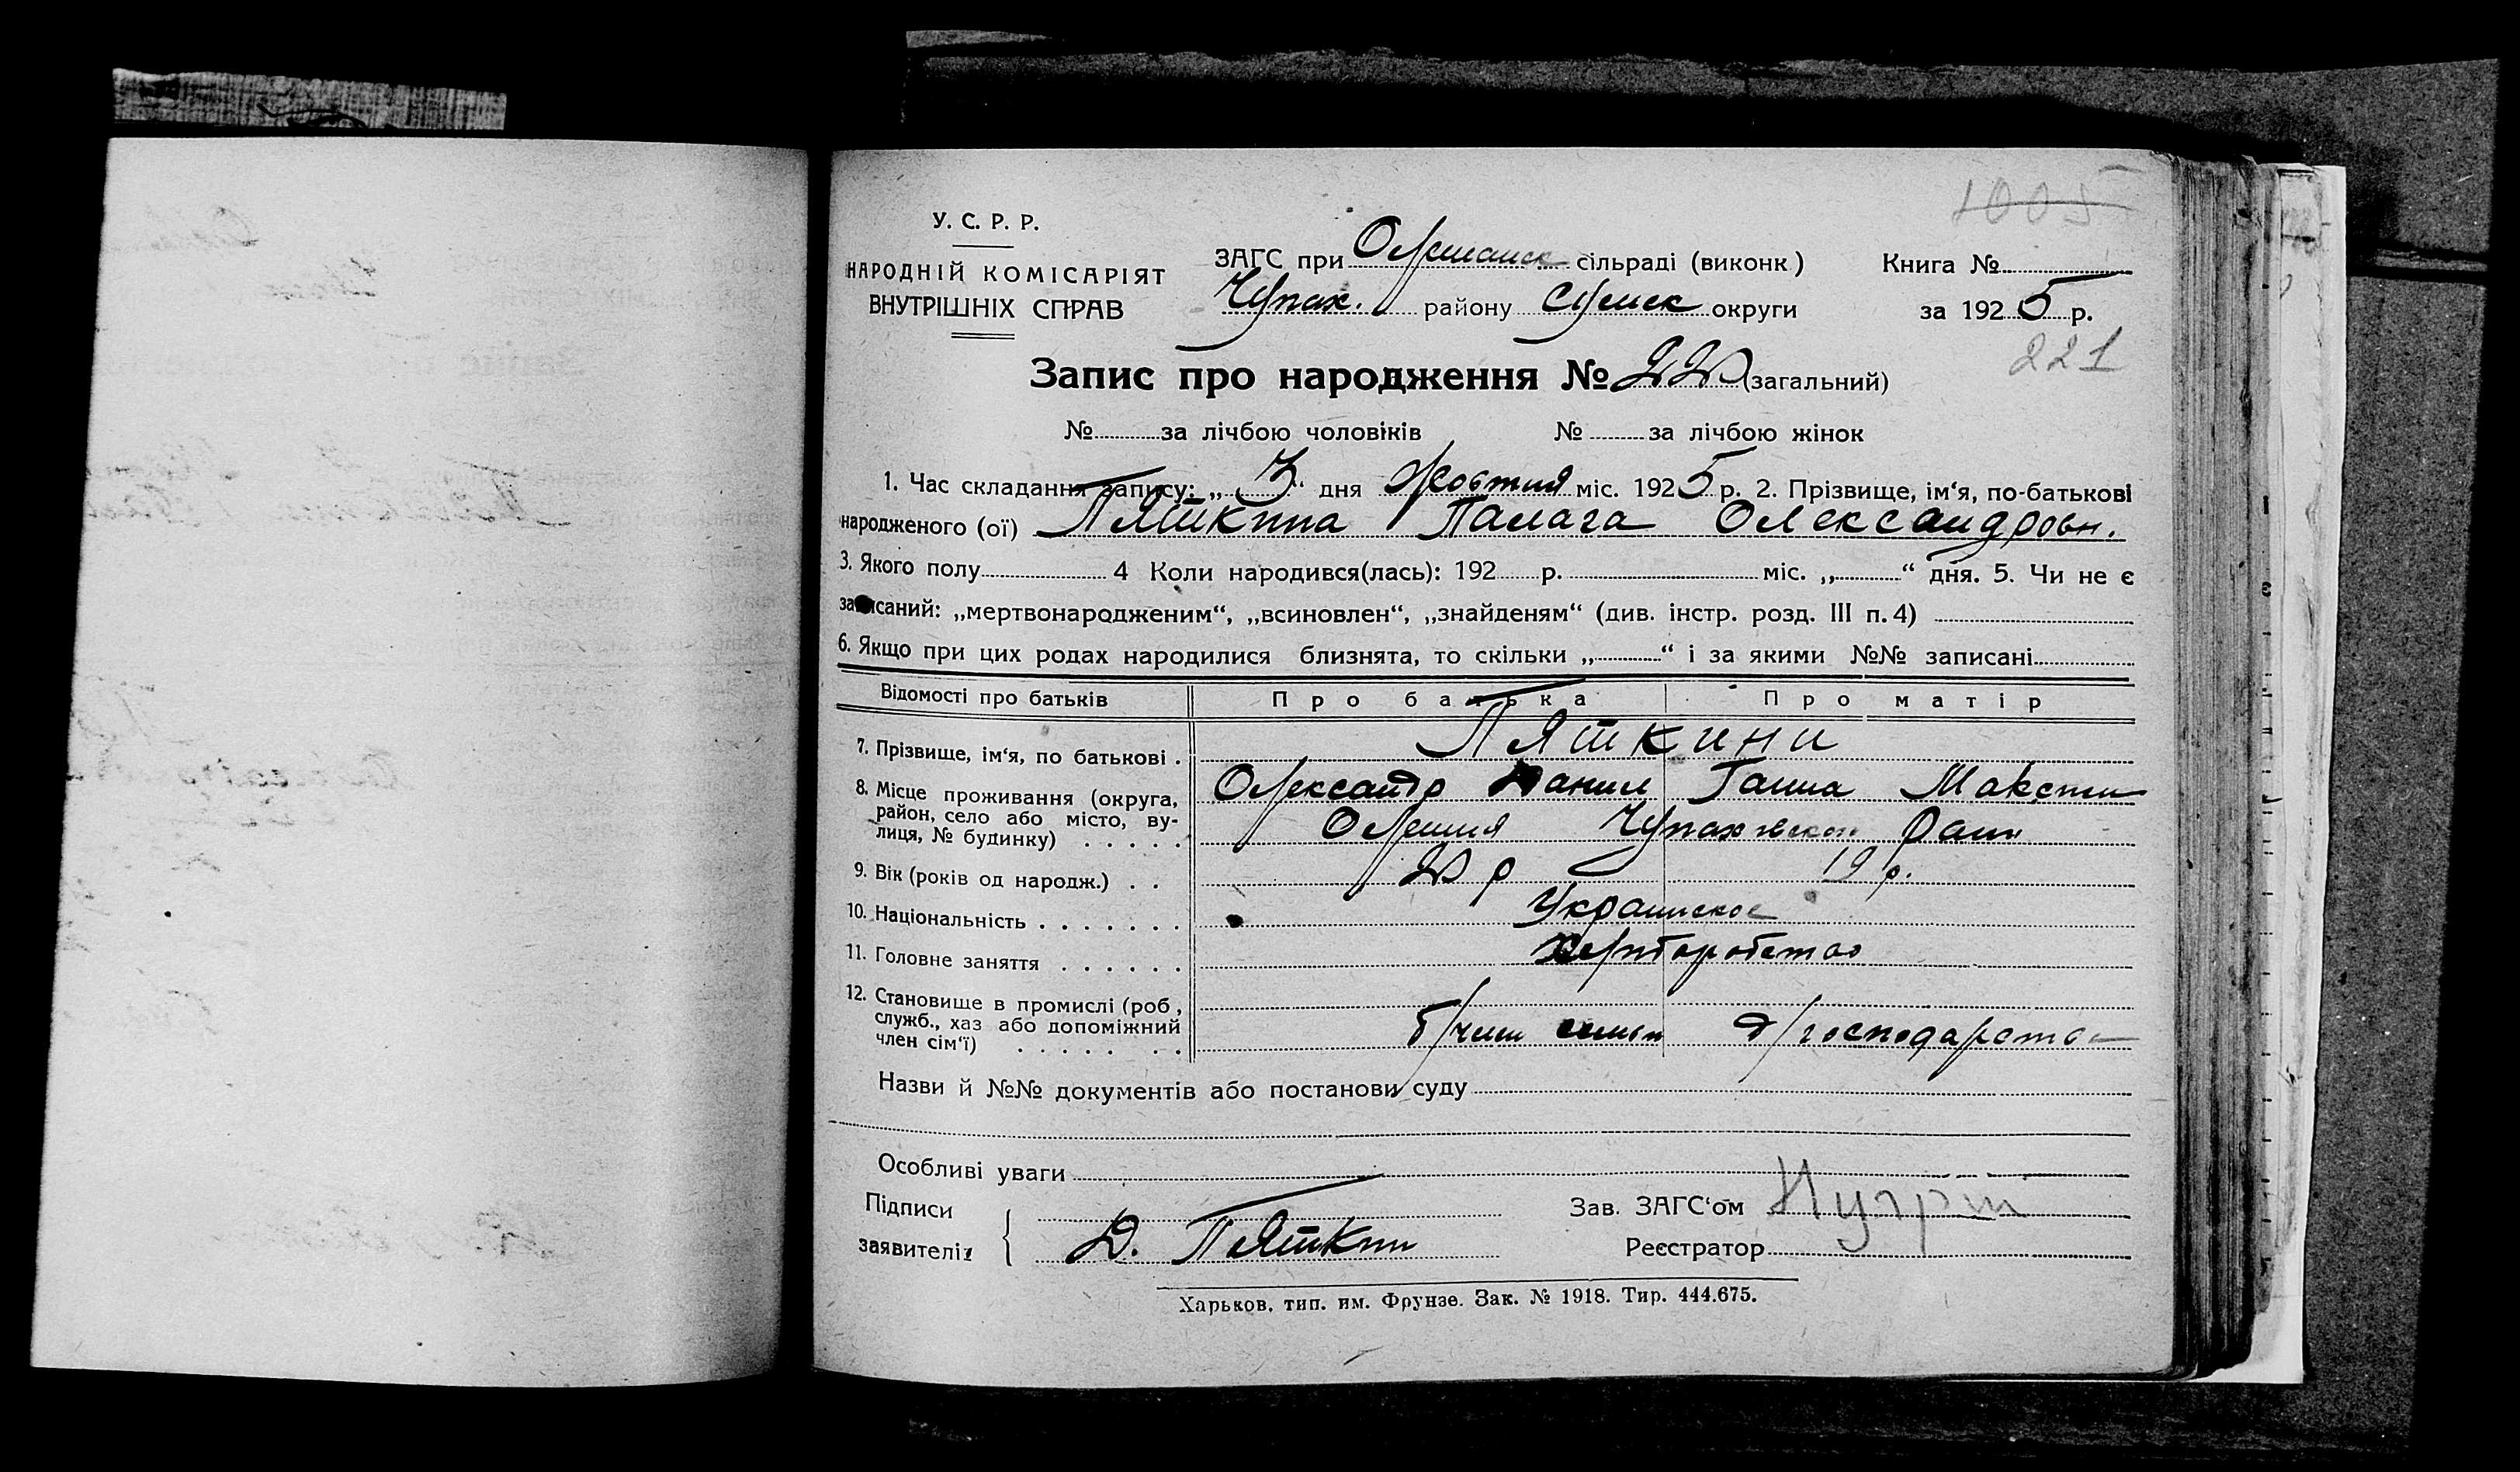 1005
У. С. Р. Р.
НАРОДНІЙ КОМІСАРІЯТ
ВНУТРІШНІХ СПРАВ
ЗАГС при Олешанск сільраді (виконк)
Чупах. району Сумск округи
Книга №
за 1925 р.
221
Запис про народження № 22 (загальний)
№ за лічбою чоловіків № за лічбою жінок
1. Час складання запису: „3" дня Жовтня міс. 1925 р. 2. Прізвище, ім'я, по-батькові
народженого (ої) Пяткина Палага Олександровн.
3. Якого полу 4 Коли народився(лась): 192 р. міс. „ " дня. 5. Чи не є
записаний: „мертвонародженим", „всиновлен", „знайденям" (див. інстр. розд. III п. 4)
6. Якщо при цих родах народилися близнята, то скільки „ " і за якими №№ записані
Відомості про батьків Про батька Про матір
7. Прізвище, ім'я, по батькові . Пяткини
Олександр Данил Ганна Максим
8. Місце проживання (округа, район, село або місто, вулиця, № будинку) . . . . . Олешня Чупаховского Раин
9. Вік (років од народж.) . . 20 р 19 р.
10. Національність . . . . . . . Украинское
11. Головне заняття . . . . . . Хлiборобство
12. Становище в промислі (роб, служб., хаз або допоміжний член сім'ї) . . . . . . . б/член семьи д/господарства
Назви й №№ документів або постанови суду
Особливі уваги
Підписи
заявителів
Д. Пяткин
Зав. ЗАГС'ом
Реєстратор
Харьков, тип. им. Фрунзе. Зак. № 1918. Тир. 444.675.